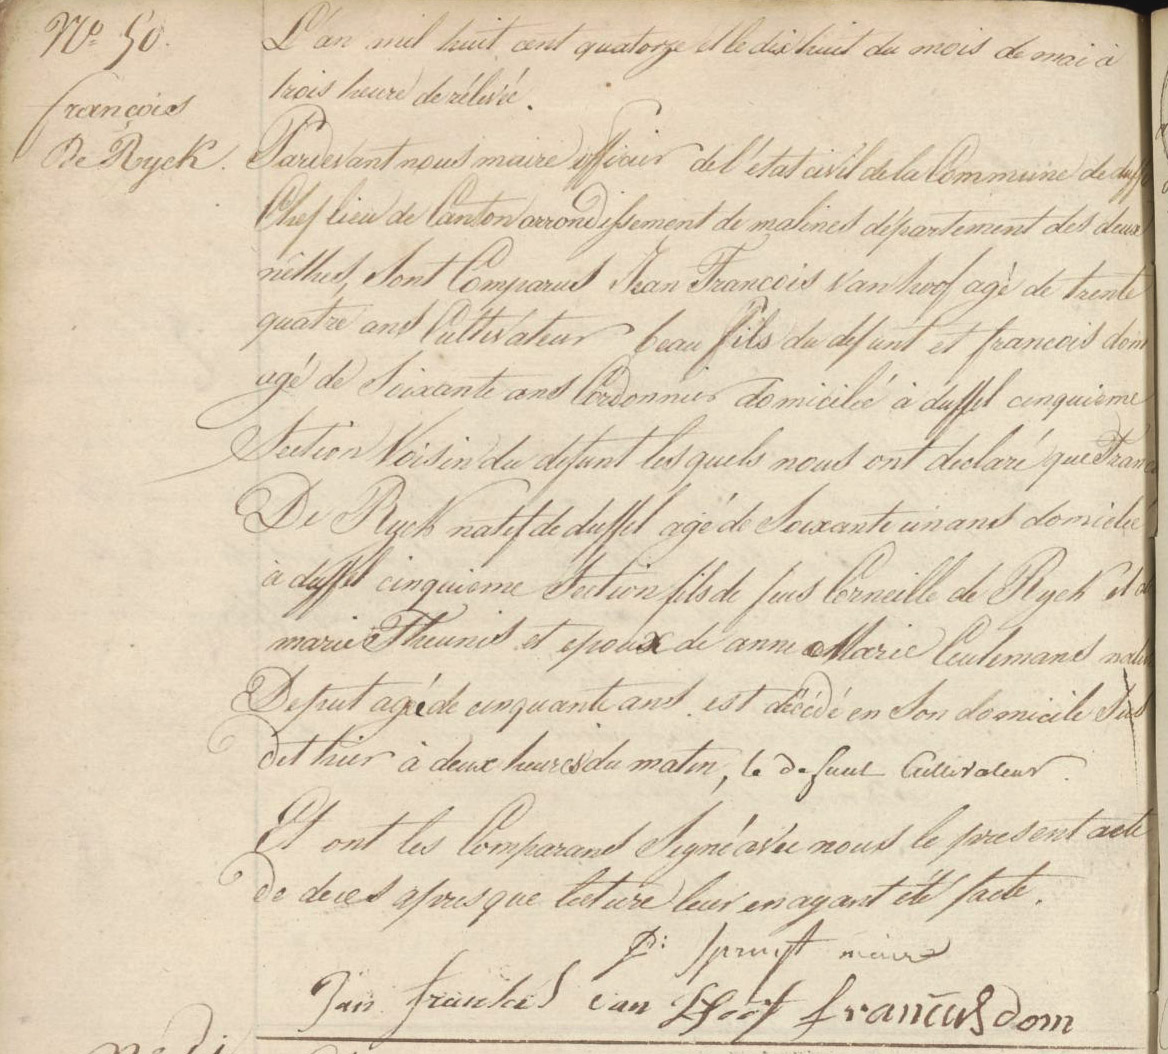 N.º 50.
françois
De Ryck.
L'an mil huit cent quatorze et le dix huit du mois de mai à
trois heure de rélévé.
Pardevant nous maire officier de l'état civil de la Commune de duff
Chef lieu de Canton arrondissement de malines département des deux
nèthes, sont Comparus Jean François Van hoof agé de trente
quatre ans Cultivateur beau fils du defunt et francois dom
agé de Soixante ans Cordonnier domicilié à duffel cinquieme
Section Voisin du defunt lesquels nous ont declaré que Fran
De Ryck natif de duffel agé de Soixante un ans domicilié
à duffel cinquieme Section fils de feus Corneille de Ryck et de
marie Theunis et epoux de anne Marie Ceulemans native
De put agée de cinquante ans est décédé en Son domicile Sus
dit hier à deux heures du matin, le defunt Cultivateur.
Et ont les Comparans Signé avec nous le present acte
de deces apres que lecture leur en ayant été facte.
maire
Jan franciscus van Hoof francus dom